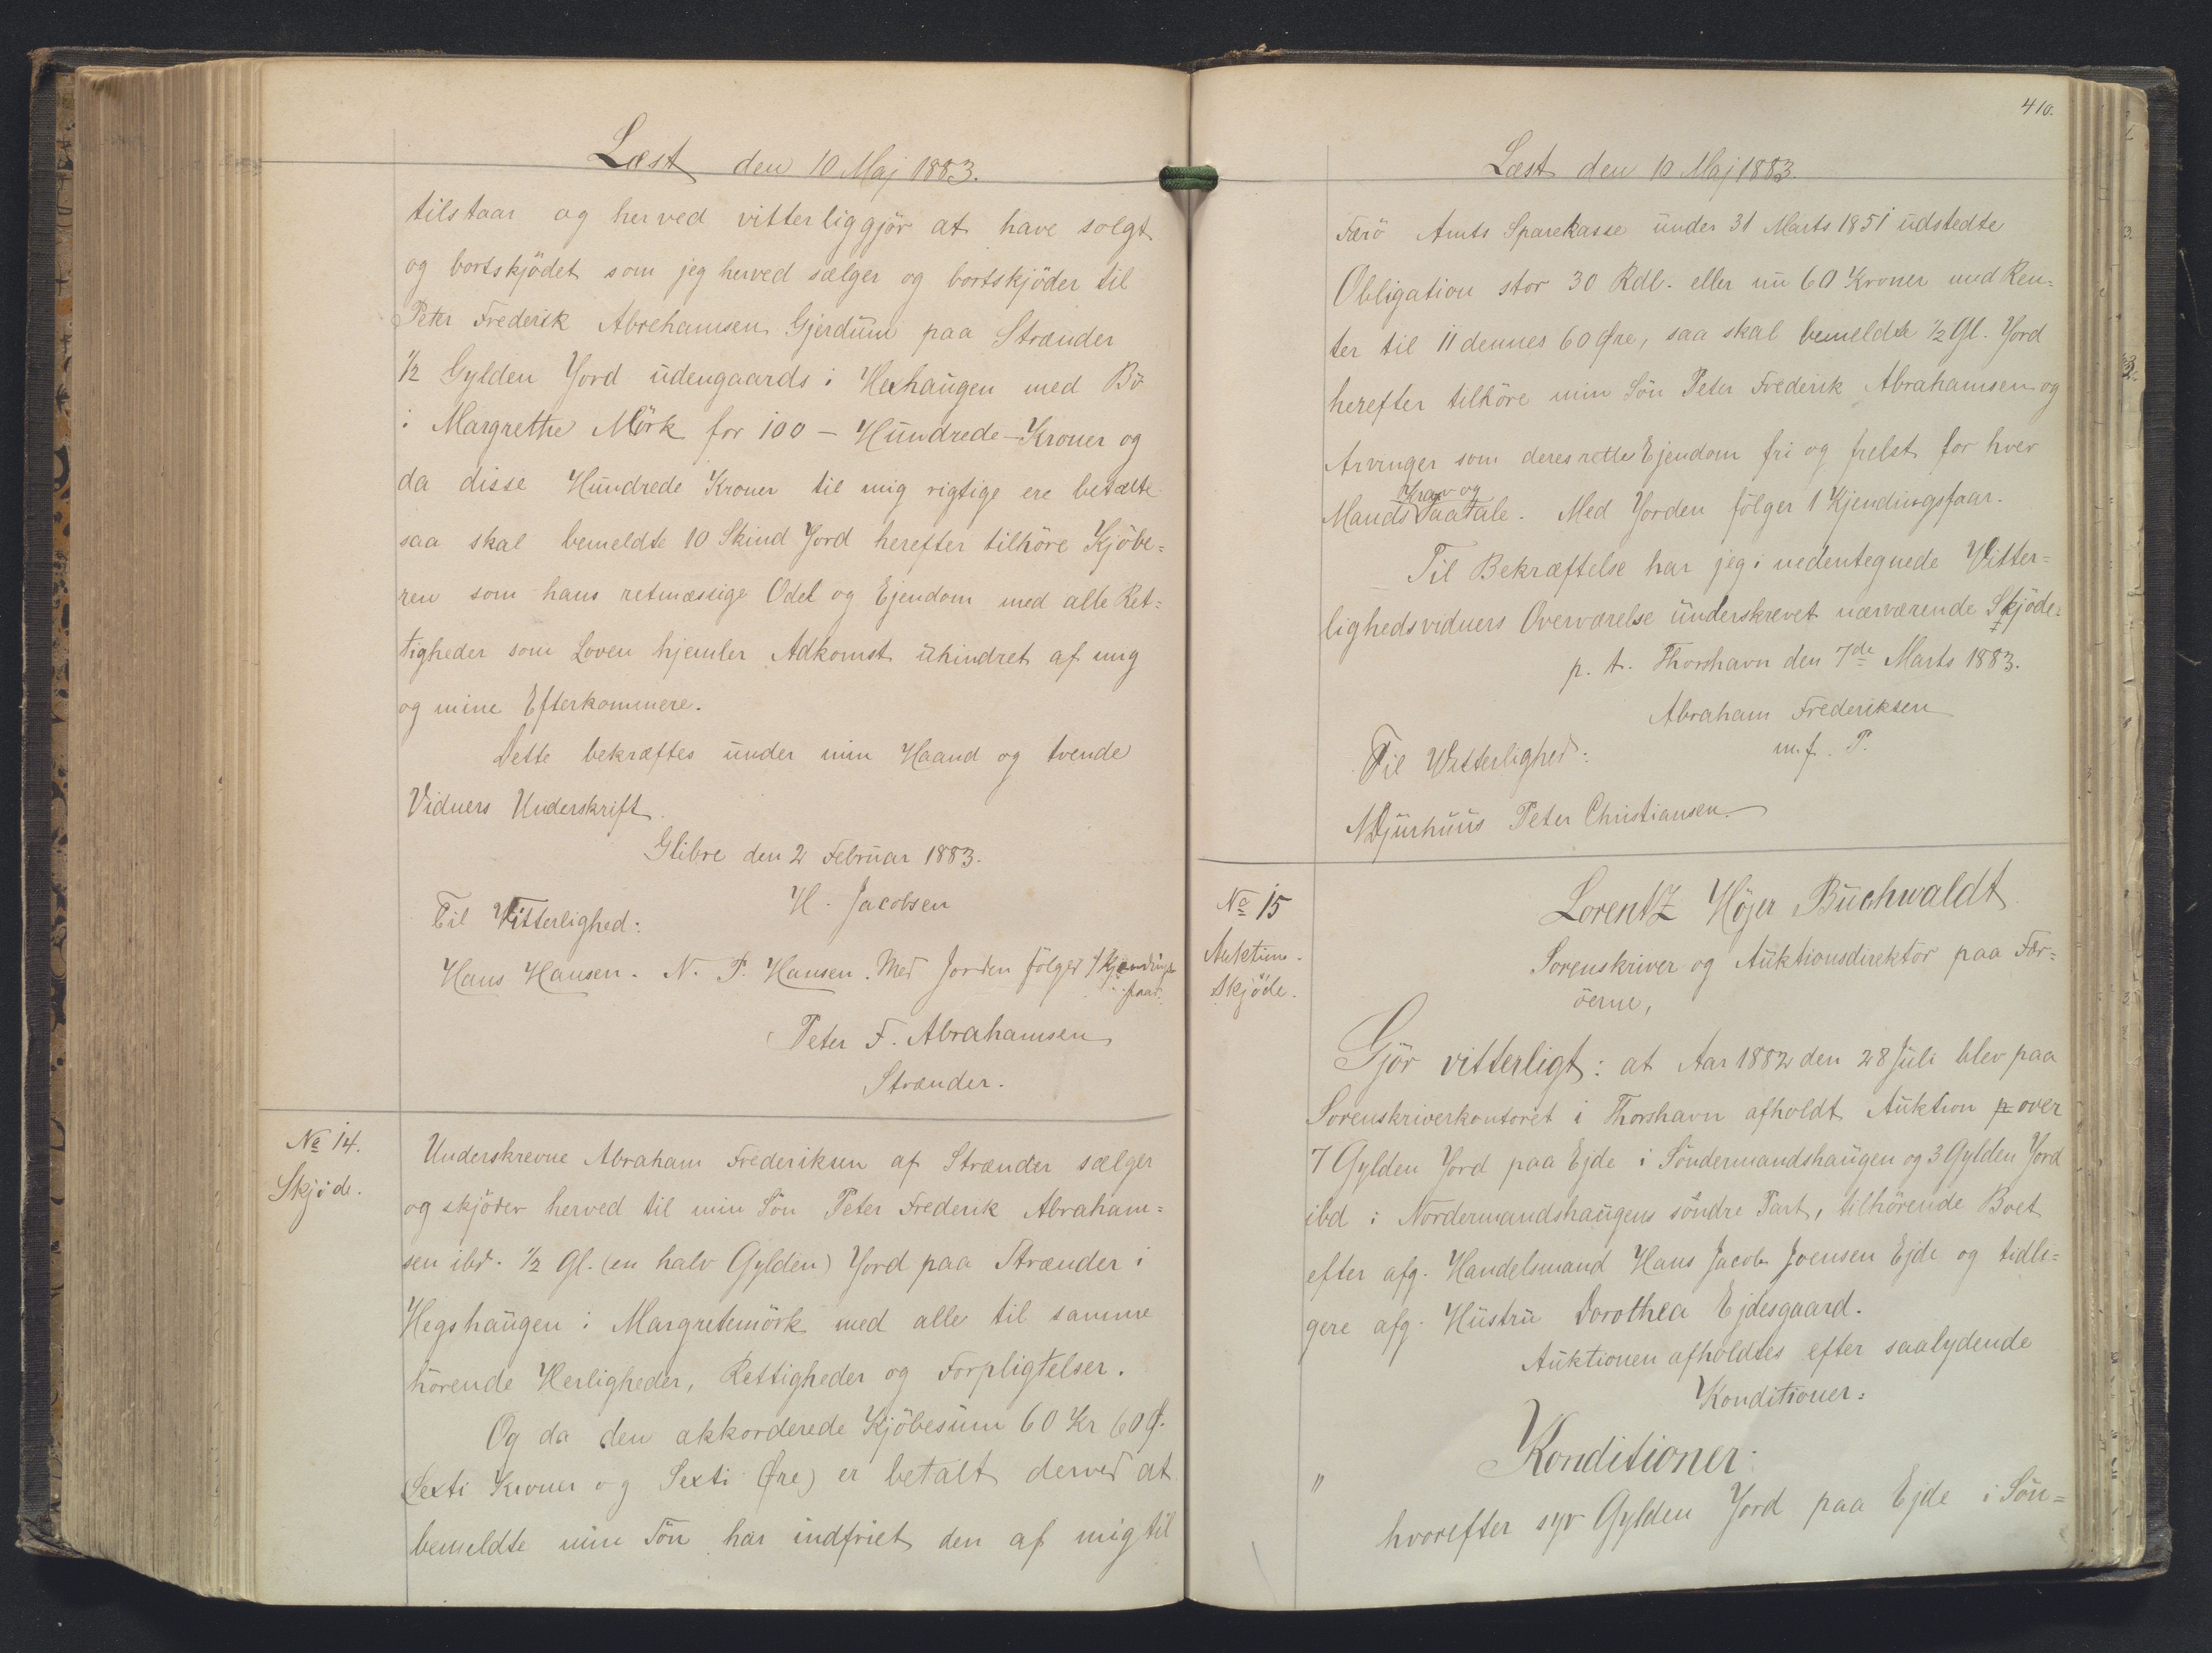 Læst den 10 Maj 1883.
tilstaar og herved vitterliggjör at have solgt
og bortskjödet som jeg herved sælger og bortskjöder til
Peter Frederik Abrehamsen Gjerdum paa Strænder
1/2 Gylden Jord udengaards i Hexhaugen med Bö
i Margrethe Mörk for 100 - Hundrede - Kroner og
da disse Hundrede Kroner til mig rigtige ere betalte
saa skal bemeldte 10 Skind Jord herefter tilhöre Kjöbe=
ren som hans retmæssige Odel og Ejendom med alle Ret=
tigheder som Loven hjemler Adkomst uhindret af mig
og mine Efterkommere.
Dette bekræftes under min Haand og tvende
Vidners Underskrift.
Glibre den 2 Februar 1883.
H. Jacobsen
Til Vitterlighed:
Hans Hansen. N. P. Hansen. Med Jorden fölger 1 Kjendings
faar.
Peter F. Abrahamsen
Strænder.
No 14.
Skjöde.
Underskrevne Abraham Frederiksen af Strænder sælger
og skjöder herved til min Sön Peter Frederik Abraham=
sen ibd. 1/2 Gl. (en halv Gylden) Jord paa Strænder i
Hegshaugen i Margretemörk med alle til samme
hörende Herligheder, Rettigheder og Forpligtelser.
Og da den akkorderede Kjöbesum 60 Kr 60 Ø.
(Sexti Kroner og Sexti Øre) er betalt derved at
bemeldte min Sön har indfriet den af mig til
410.
Læst den 10 Maj 1883.
Færö Amts Sparekasse under 31 Marts 1851 udstedte
Obligation stor 30 Rdl. eller nu 60 Kroner med Ren=
ter til 11 dennes 60 Øre, saa skal bemeldte 1/2 Gl. Jord
herefter tilhöre min Sön Peter Frederik Abrahamsen og
Arvinger som deres rette Ejendom fri og frelst for hver
Krav og
Mands Paatale. Med Jorden fölger 1 Kjendingsfaar.
Til Bekræftelse har jeg i nedentegnede Vitter=
lighedsvidners Overværelse underskrevet nærværende Skjöde.
p. t. Thorshavn den 7de Marts 1883.
Abraham Frederiksen
m. f. P.
Til Vitterlighed:
N Djurhuus Peter Christiansen.
No 15
Auktions-
skjöde.
Lorentz Höjer Buchwaldt
Sorenskriver og Auktionsdirektör paa Fær=
öerne,
Gjör vitterligt: at Aar 1882 den 28 Juli blev paa
Sorenskriverkontoret i Thorshavn afholdt Auktion p over
7 Gylden Jord paa Ejde i Söndermandshaugen og 3 Gylden Jord
ibd i Nordermandshaugens söndre Part, tilhörende Boet
efter afg. Handelsmand Hans Jacob Joensen Ejde og tidli=
gere afg. Hustru Dorothea Ejdesgaard.
Auktionen afholdtes efter saalydende
Konditioner:
Konditioner:
"
hvorefter syv Gylden Jord paa Ejde i Sön=